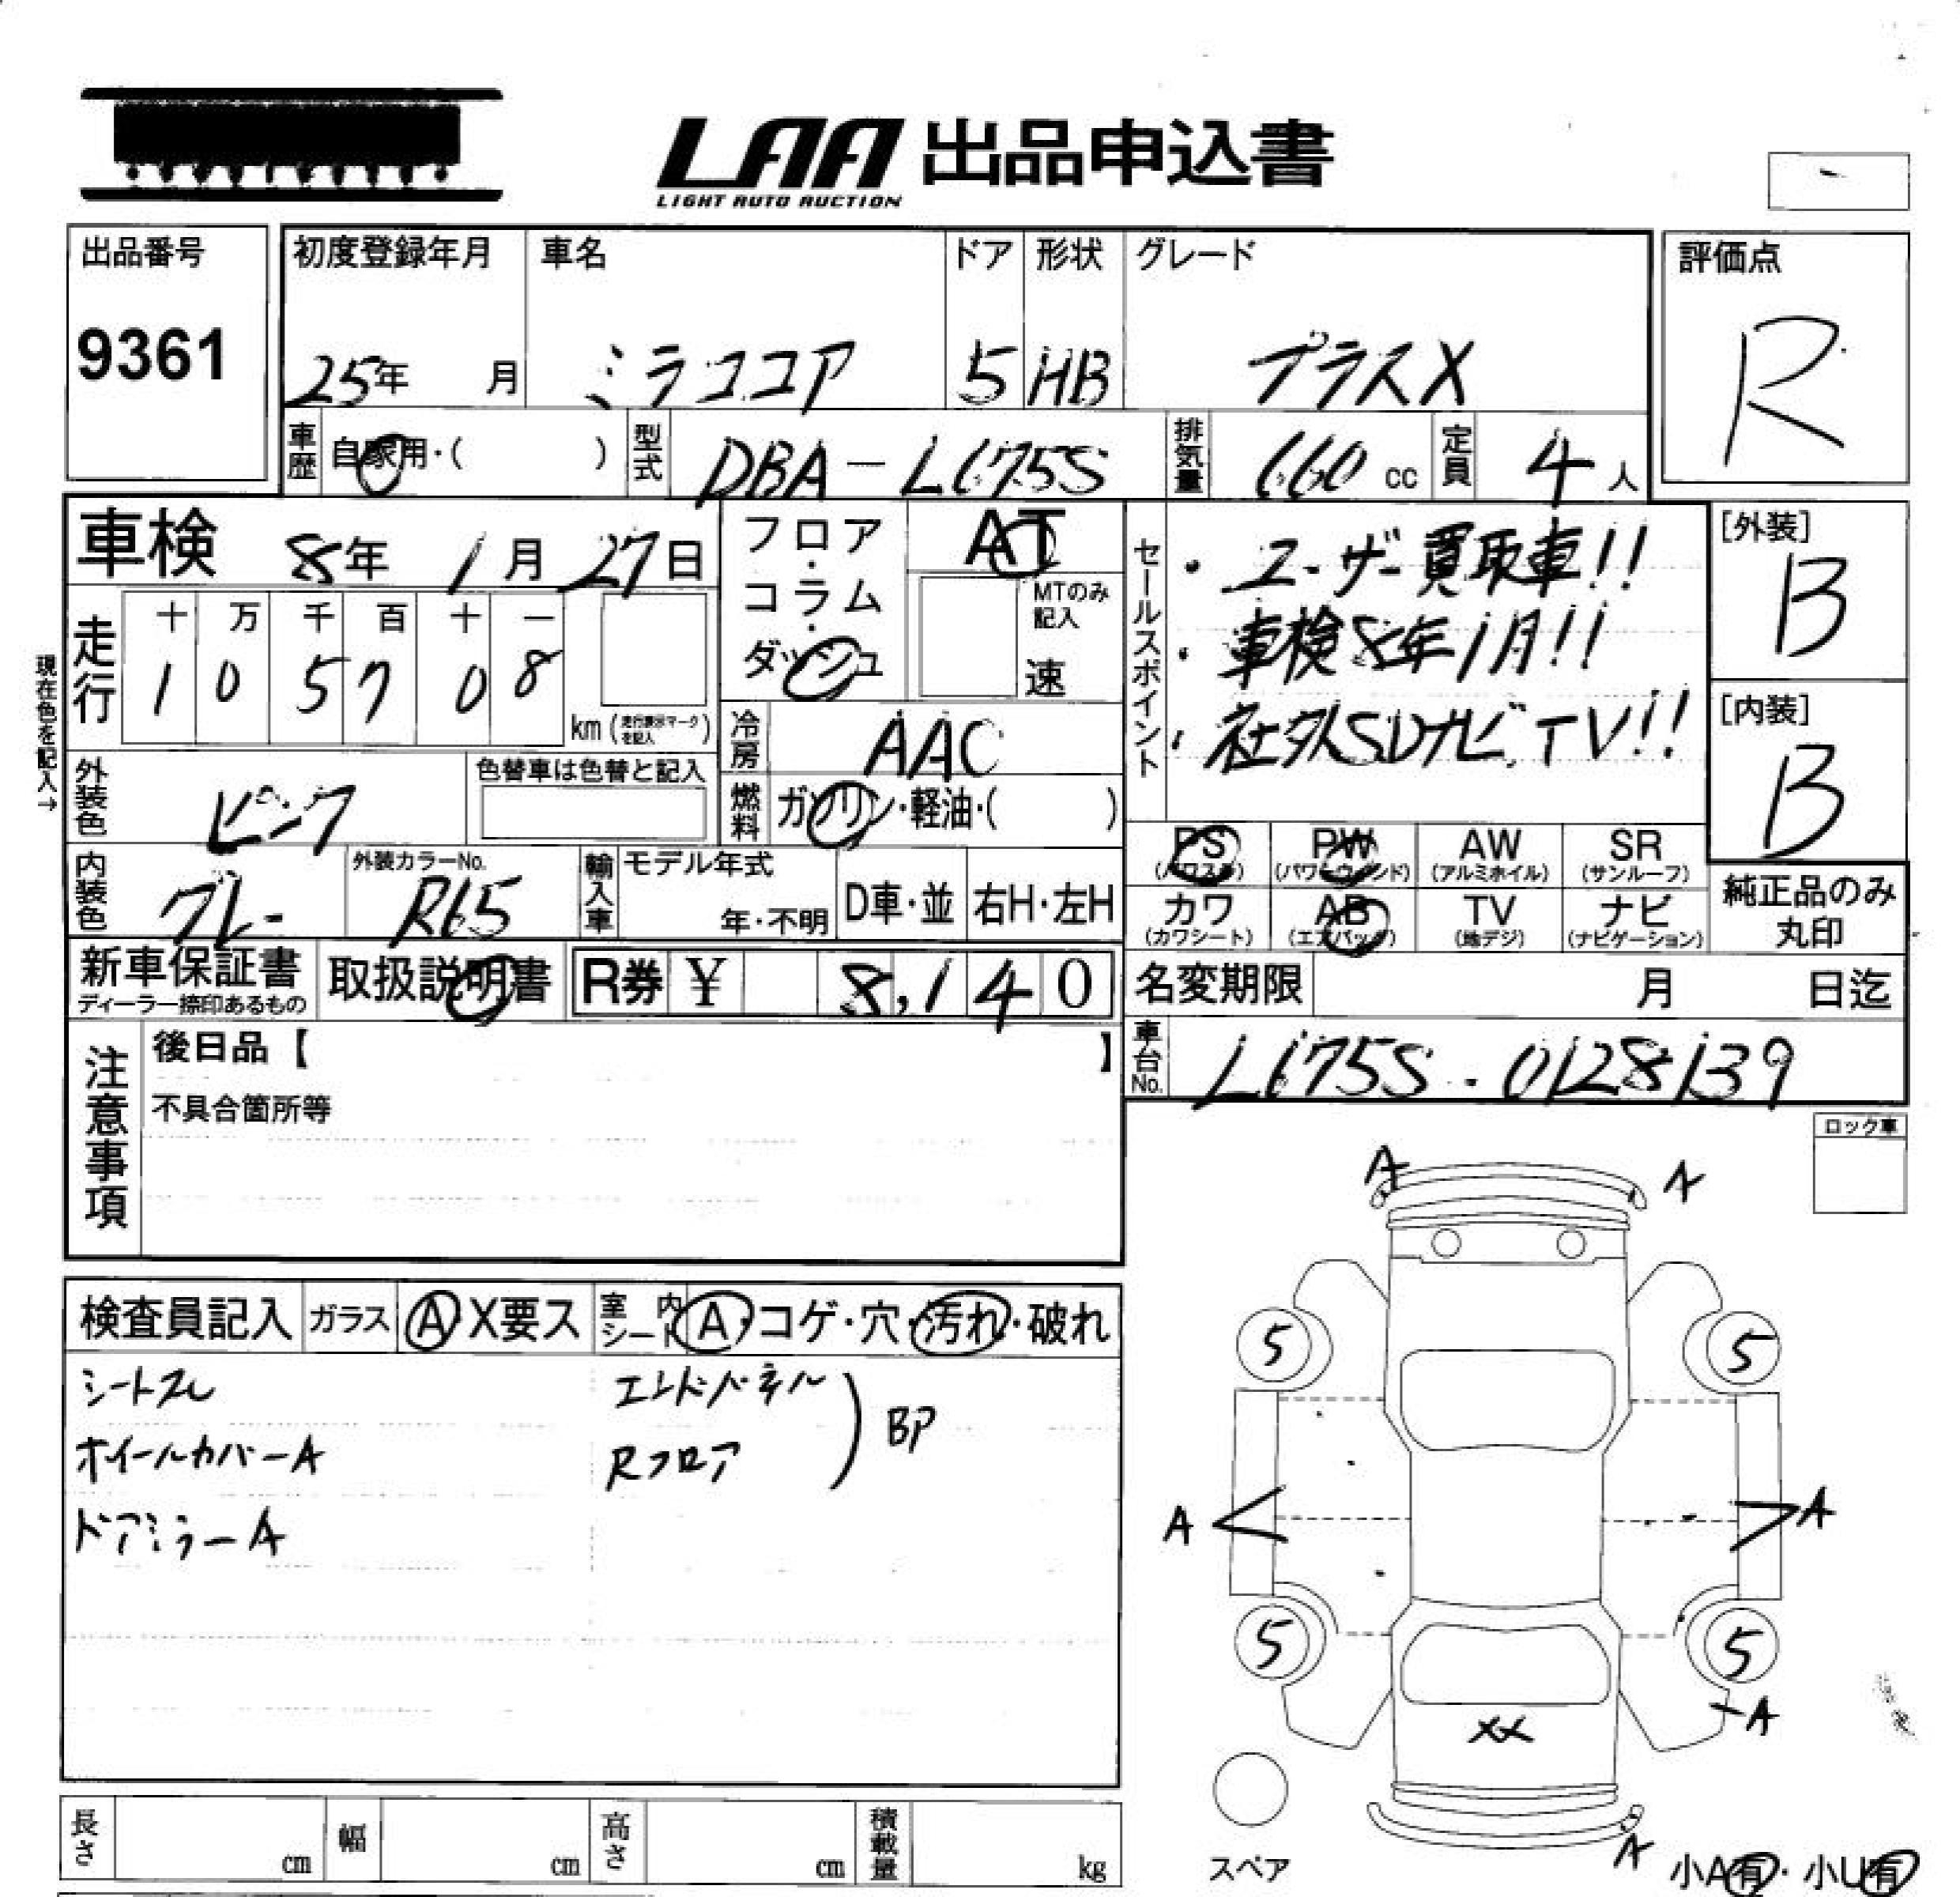 LAA 出品申込書
LIGHT AUTO AUCTION
出品番号
9361
初度登録年月
25年 月
車名
ミラココア
ドア
5
形状
HB
グレード
プラスX
評価点
R
車歴 自家用・( )
型式 DBA-L675S
排気量 660 cc
定員 4 人
車検 8年 1月 27日
現在色を記入→
走行
十 万 千 百 十 一
1 0 5 7 0 8
km (走行表示マークを記入)
フロア・コラム・ダッシュ
AT
MTのみ記入
速
セールスポイント
・ユーザー買取車!!
・車検8年1月!!
・社外SDナビ、TV!!
[外装]
B
[内装]
B
冷房 AAC
外装色 ピンク
色替車は色替と記入
燃料 ガソリン・軽油・( )
内装色 グレー
外装カラーNo.
R65
輸入車 モデル年式
年・不明
D車・並
右H・左H
PS (パワステ)
PW (パワーウィンド)
AW (アルミホイル)
SR (サンルーフ)
カワ (カワシート)
AB (エアバック)
TV (地デジ)
ナビ (ナビゲーション)
純正品のみ丸印
新車保証書
ディーラー捺印あるもの
取扱説明書
R券 ¥ 8,140
名変期限 月 日迄
注意事項
後日品【 】
不具合箇所等
車台No. L675S-0128139
ロック車
検査員記入
ガラス A X要ス
室内シート A・コゲ・穴・汚れ・破れ
シートスレ
ホイールカバーA
ドアミラーA
エンドパネル
Rフロア
BP
A
A
5
5
A
A
5
5
A
XX
A
スペア
小A有・小U有
長さ cm
幅 cm
高さ cm
積載量 kg